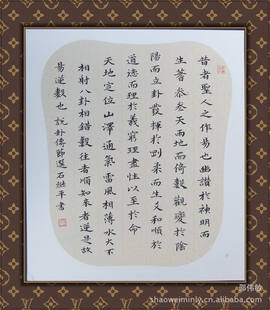 昔者聖人之作易也幽讚於神明而
生蓍參天兩地而倚數觀變於陰
陽而立卦發揮於剛柔而生爻和順於
道德而理於義窮理盡性以至於命
天地定位山澤通氣雷風相薄水火不
相射八卦相錯數往者順知來者逆是故
易逆數也 說卦傳節選 石继平書
邵伟敏
shaoweiminly.cn.alibaba.com